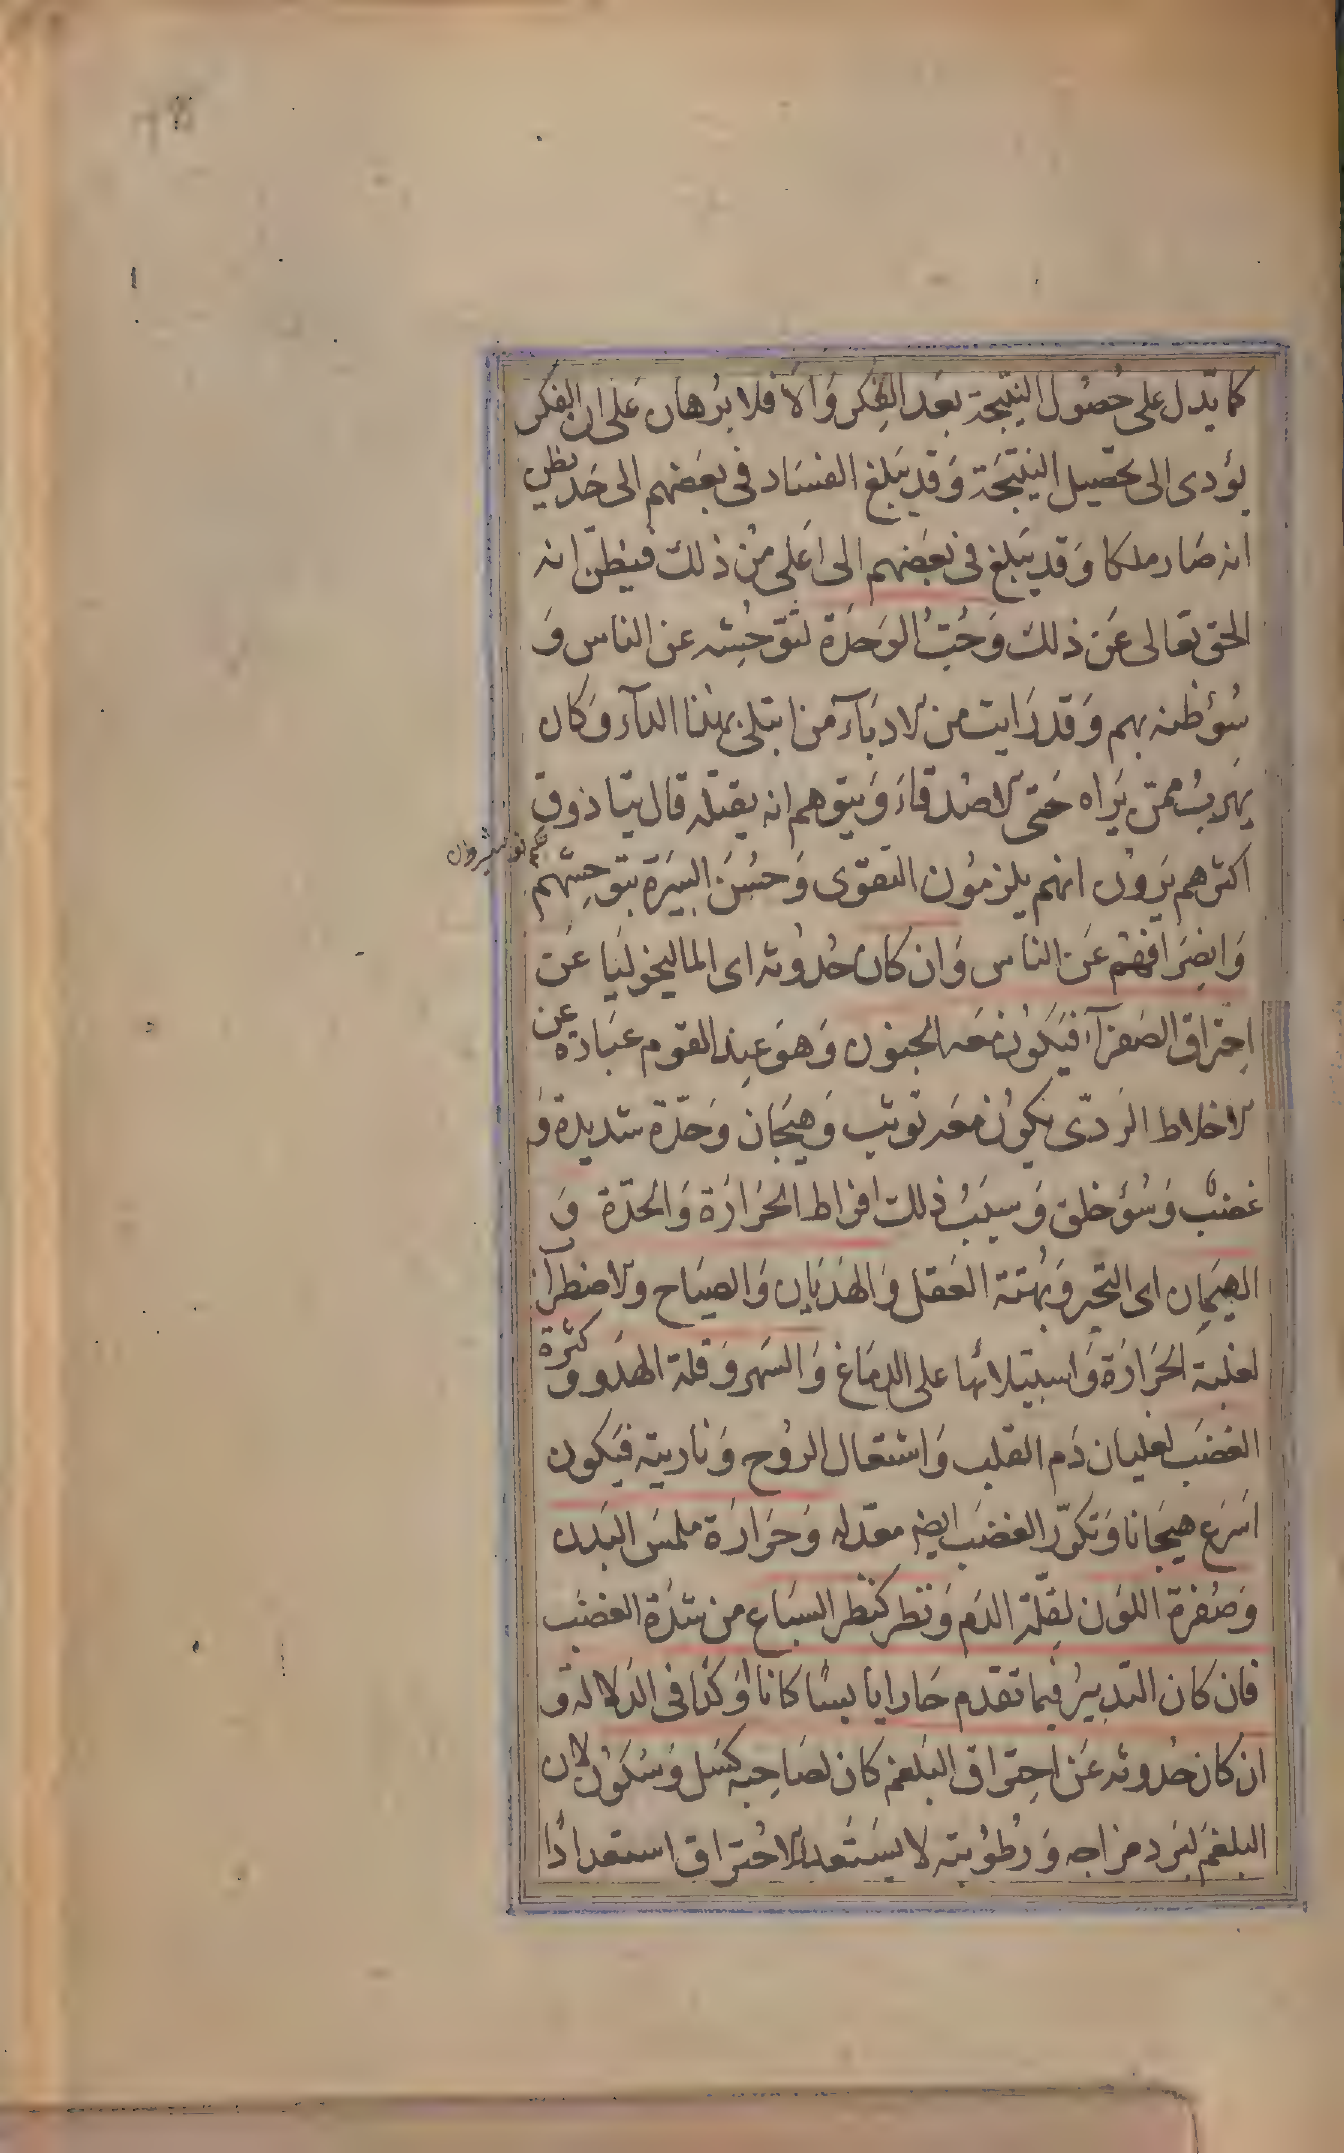 كما يدل على حصول النتيجة بعد الفكر والا فلا برهان على ان الفكر
يؤدى الى تحصيل النتيجة وقد يبلغ الفساد فى بعضهم الى حد يظن
انه صار ملكا وقد يبلغ فى بعضهم الى اعلى من ذلك فيظن انه
الحق تعالى عن ذلك وحب الوحدة لتوحشه عن الناس و
سوء ظنه بهم وقد رايت من الادباء من ابتلى بهذا الداء وكان
يهرب ممن يراه حتى الاصدقاء ويتوهم انه يقتله قال تياذوق
حكيم نوشيروان
اكثرهم يرون انهم يلزمون التقوى وحسن السيرة بتوحشهم
وانصرافهم عن الناس وان كان حدوثه اى الماليخوليا عن
احتراق الصفراء فيكون معه الجنون وهو عند القوم عبارة عن
الاخلاط الردى يكون معه توثب وهيجان وحدة شديدة و
غضب وسوء خلق وسبب ذلك افراط الحرارة والحدة و
الهيمان اى التحير وبهتة العقل والهذيان والصياح والاضطراب
لغلبة الحرارة واستيلائها على الدماغ والسهر وقلة الهدو وكثرة
الغضب لغليان دم القلب واشتعال الروح وناريته فيكون
اسرع هيجانا وتكرر الغضب ايضه معد له وحرارة ملمس البدن
وصفرة اللون لقلة الدم ونظر كنظر السباع من شدة الغضب
فان كان التدبير فيما تقدم حارا يابسا كانا اوكد فى الدلالة و
ان كان حدوثه عن احتراق البلغم كان لصاحبه كسل وسكون لان
البلغم لبرد مزاجه ورطوبته لا يستعد للاحتراق استعدادا